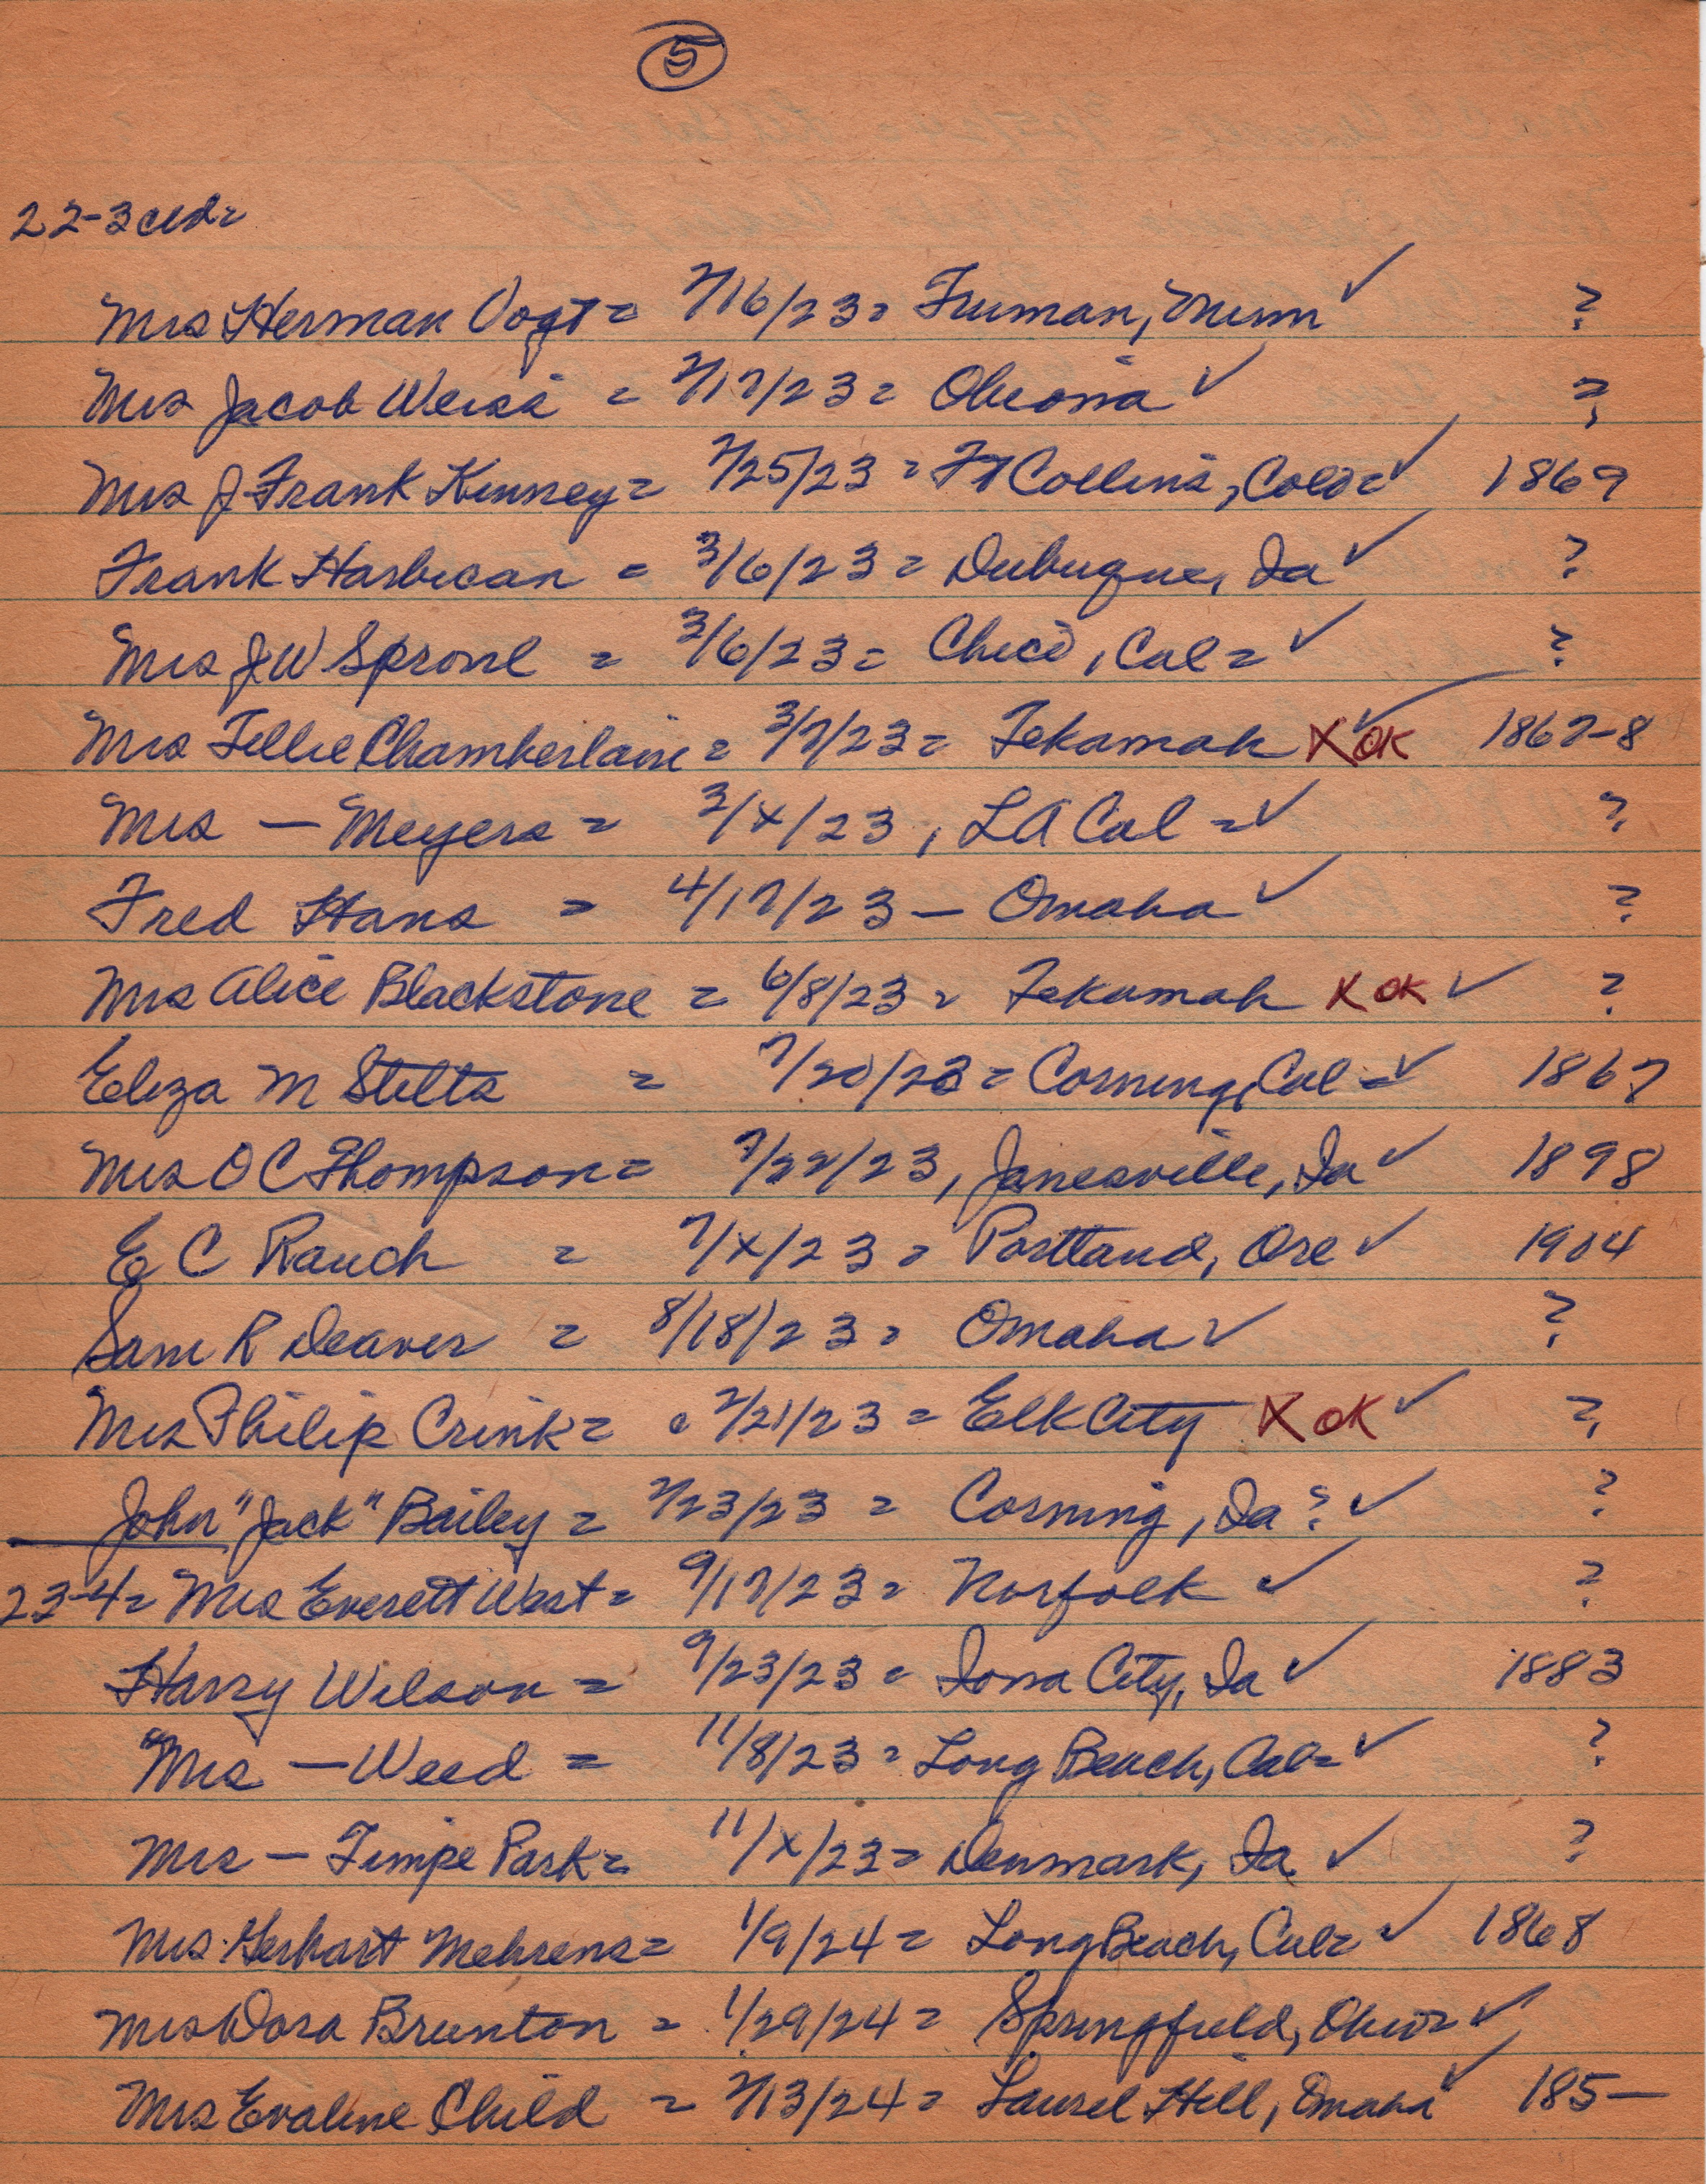 5
22-3 cld=
Mrs Herman Vogt = 2/16/23 = Truman, Minn ✓ ?
Mrs Jacob Weiss = 2/17/23 = ✓ ?
Mrs J Frank Kinney = 2/25/23 = Ft Collins, Colo = ✓ 1869
Frank Harbican = 3/6/23 = Dubuque, Ia ✓ ?
Mrs JW Sproul = 3/6/23 = Chico, Cal = ✓ ?
Mrs Tillie Chamberlain = 3/7/23 = Tekamah X OK ✓ 1867-8
Mrs — Meyers = 3/X/23, LA Cal = ✓ ?
Fred Hans = 4/17/23 — Omaha ✓ ?
Mrs Alice Blackstone = 6/8/23 = Tekamah X OK ✓ ?
Eliza M Stilts = 7/20/23 = Corning, Cal = ✓ 1867
Mrs O C Thompson = 7/22/23, Janesville, Ia ✓ 1898
E C Rauch = 7/X/23 = Portland, Ore ✓ 1904
Sam R Deaver = 8/18/23 = Omaha ✓ ?
Mrs Philip Crink = 2/21/23 = Elk City X OK ✓ ?
John "Jack" Bailey = 2/23/23 = Corning, Ia ? ✓ ?
23-4 = Mrs Everett West = 9/17/23 = Norfolk ✓ ?
Harry Wilson = 9/23/23 = Iowa City, Ia ✓ 1883
Mrs — Weed = 11/8/23 = Long Beach, Cal = ✓ ?
Mrs — Timpe Park = 11/X/23 = Denmark, Ia ✓ ?
Mrs Gerhart Mehrens = 1/9/24 = Long Beach, Cal = ✓ 1868
Mrs Dora Brunton = 1/29/24 = Springfield, Ohio = ✓
Mrs Evaline Child = 2/13/24 = Laurel Hill, Omaha ✓ 185—